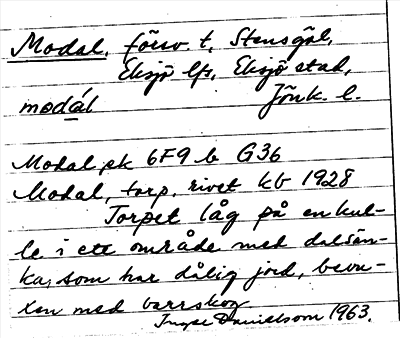 Modal, försv. t. Stensgöl,
Eksjö lfs, Eksjö stad,
modál Jönk. l.
Modal, ek 6F9 b G36
Modal, torp, rivet kb 1928
Torpet låg på en kul-
le i ett område med dalsän-
ka, som har dålig jord, bevu-
xen med barrskog
Inger Danielsson 1963.